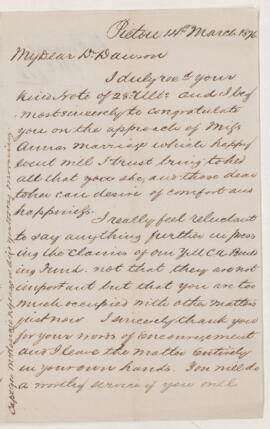 Pictou 14th March 1876
My Dear Dr Dawson
I duly recd your
kind Note of 28 Ult and I beg
most sincerely to congratulate
you on the approach of Miss
Annas Marriage which happy
event will I trust bring to her
all that you she, and those dear
to her can desire of comfort and
happiness.
I really feel reluctant
to say anything further in press
ing the Claims of our YMCA Build
ing Fund. not that they are not
important but that you are too
much occupied with other matters
just now I sincerely thank you
for your words of Encouragement
and I leave the matter Entirely
in your own hands. You will do
a worthy service if you will
Capt Geo McKenzie departed this life yesterday morning